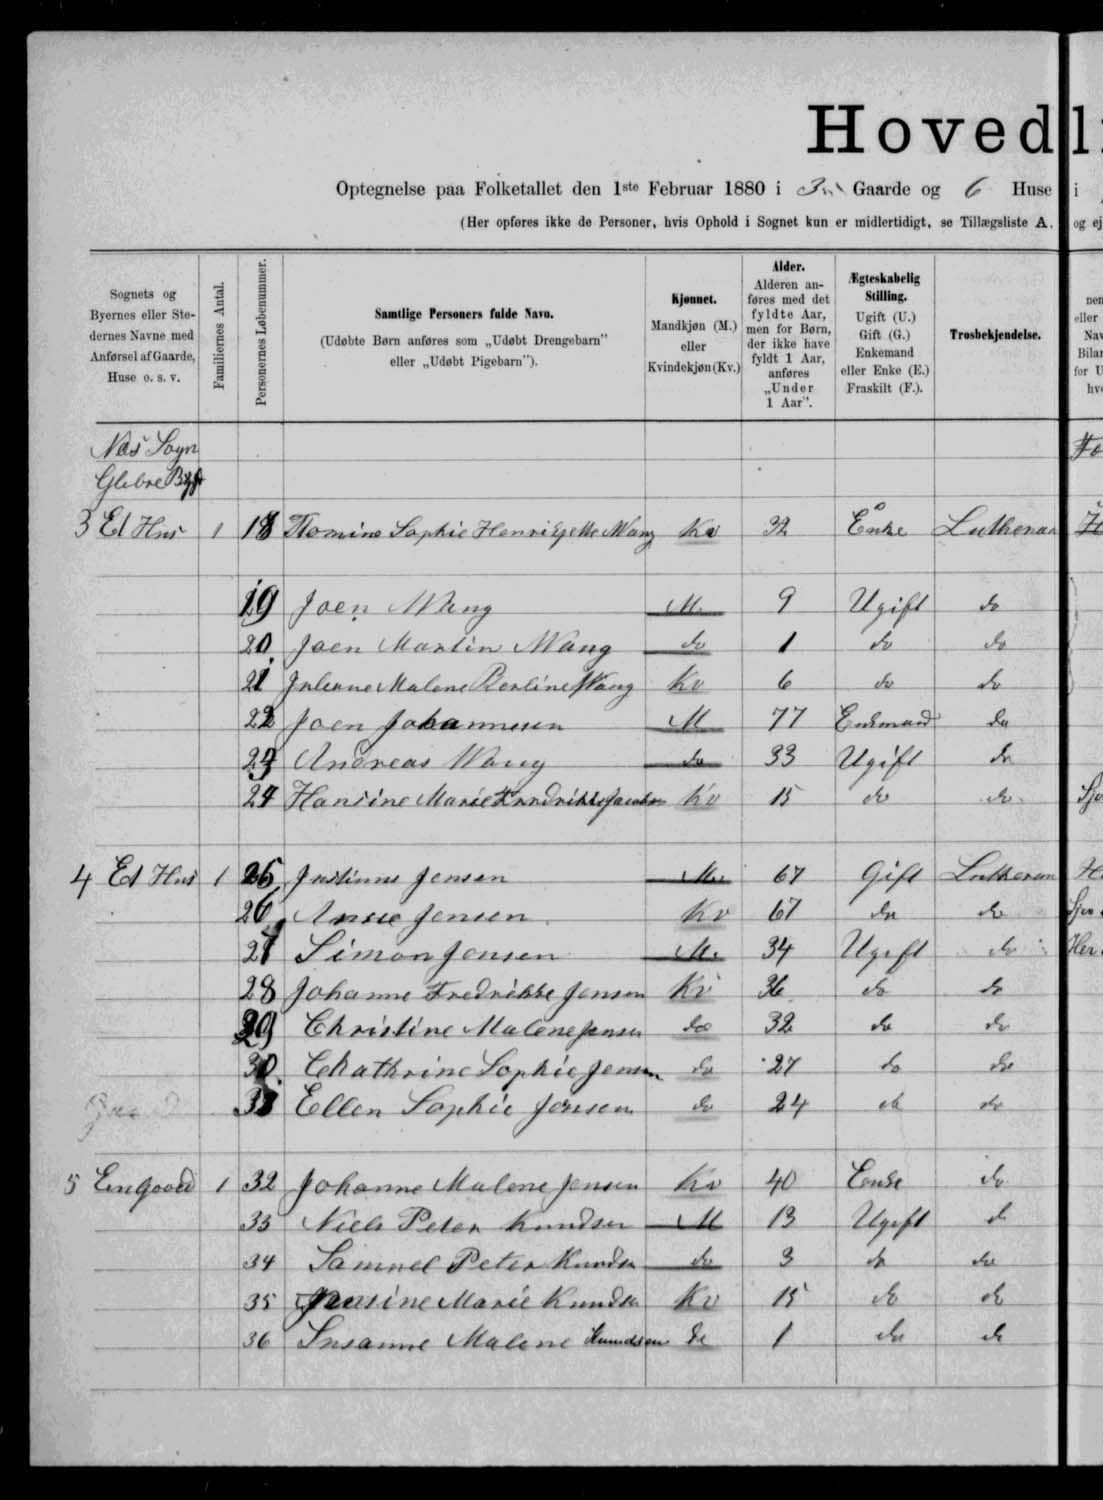 Hovedli
Optegnelse paa Folketallet den 1ste Februar 1880 i 3 Gaarde og 6 Huse i
(Her opføres ikke de Personer, hvis Ophold i Sognet kun er midlertidigt, se Tillægsliste A. og ej
Sognets og Byernes eller Stedernes Navne med Anførsel af Gaarde, Huse o. s. v.
Familiernes Antal.
Personernes Løbenummer.
Samtlige Personers fulde Navn.
(Udøbte Børn anføres som „Udøbt Drengebarn"
eller „Udøbt Pigebarn").
Kjønnet.
Mandkjøn (M.)
eller
Kvindekjøn (Kv.)
Alder.
Alderen an-
føres med det
fyldte Aar,
men for Børn,
der ikke have
fyldt 1 Aar,
anføres
„Under
1 Aar".
Ægteskabelig
Stilling.
Ugift (U.)
Gift (G.)
Enkemand
eller Enke (E.)
Fraskilt (F.).
Trosbekjendelse.
Næs Sogn
Glibre Bygd
3 Et Hus 1 18 Sophie Henrigette Wang Kv 32 Enke Lutheran
19 Joen Wang M. 9 Ugift do
20 Joen Martin Wang do 1 do do
21 Malene Wang Kv 6 do do
22 Joen Johannesen M 77 Enkemand do
23 Andreas Wang do 33 Ugift do
24 Hansine Marie Fredrikke Kv 15 do do
4 Et Hus 1 25 Justinus Jensen M. 67 Gift Lutheran
26 Anne Jensen Kv 67 do do
27 Simon Jensen M. 34 Ugift do
28 Johanne Fredrikke Jensen Kv 36 do do
29 Christine Malene Jensen do 32 do do
30 Chathrine Sophie Jensen do 27 do do
31 Ellen Sophie Jensen do 24 do do
5 En Gaard 1 32 Johanne Malene Jensen Kv 40 Enke do
33 Niels Peter Knudsen M 13 Ugift do
34 Samuel Peter Knudsen do 3 do do
35 Jensine Marie Knudsen Kv 15 do do
36 Susanne Malene Knudsen do 1 do do